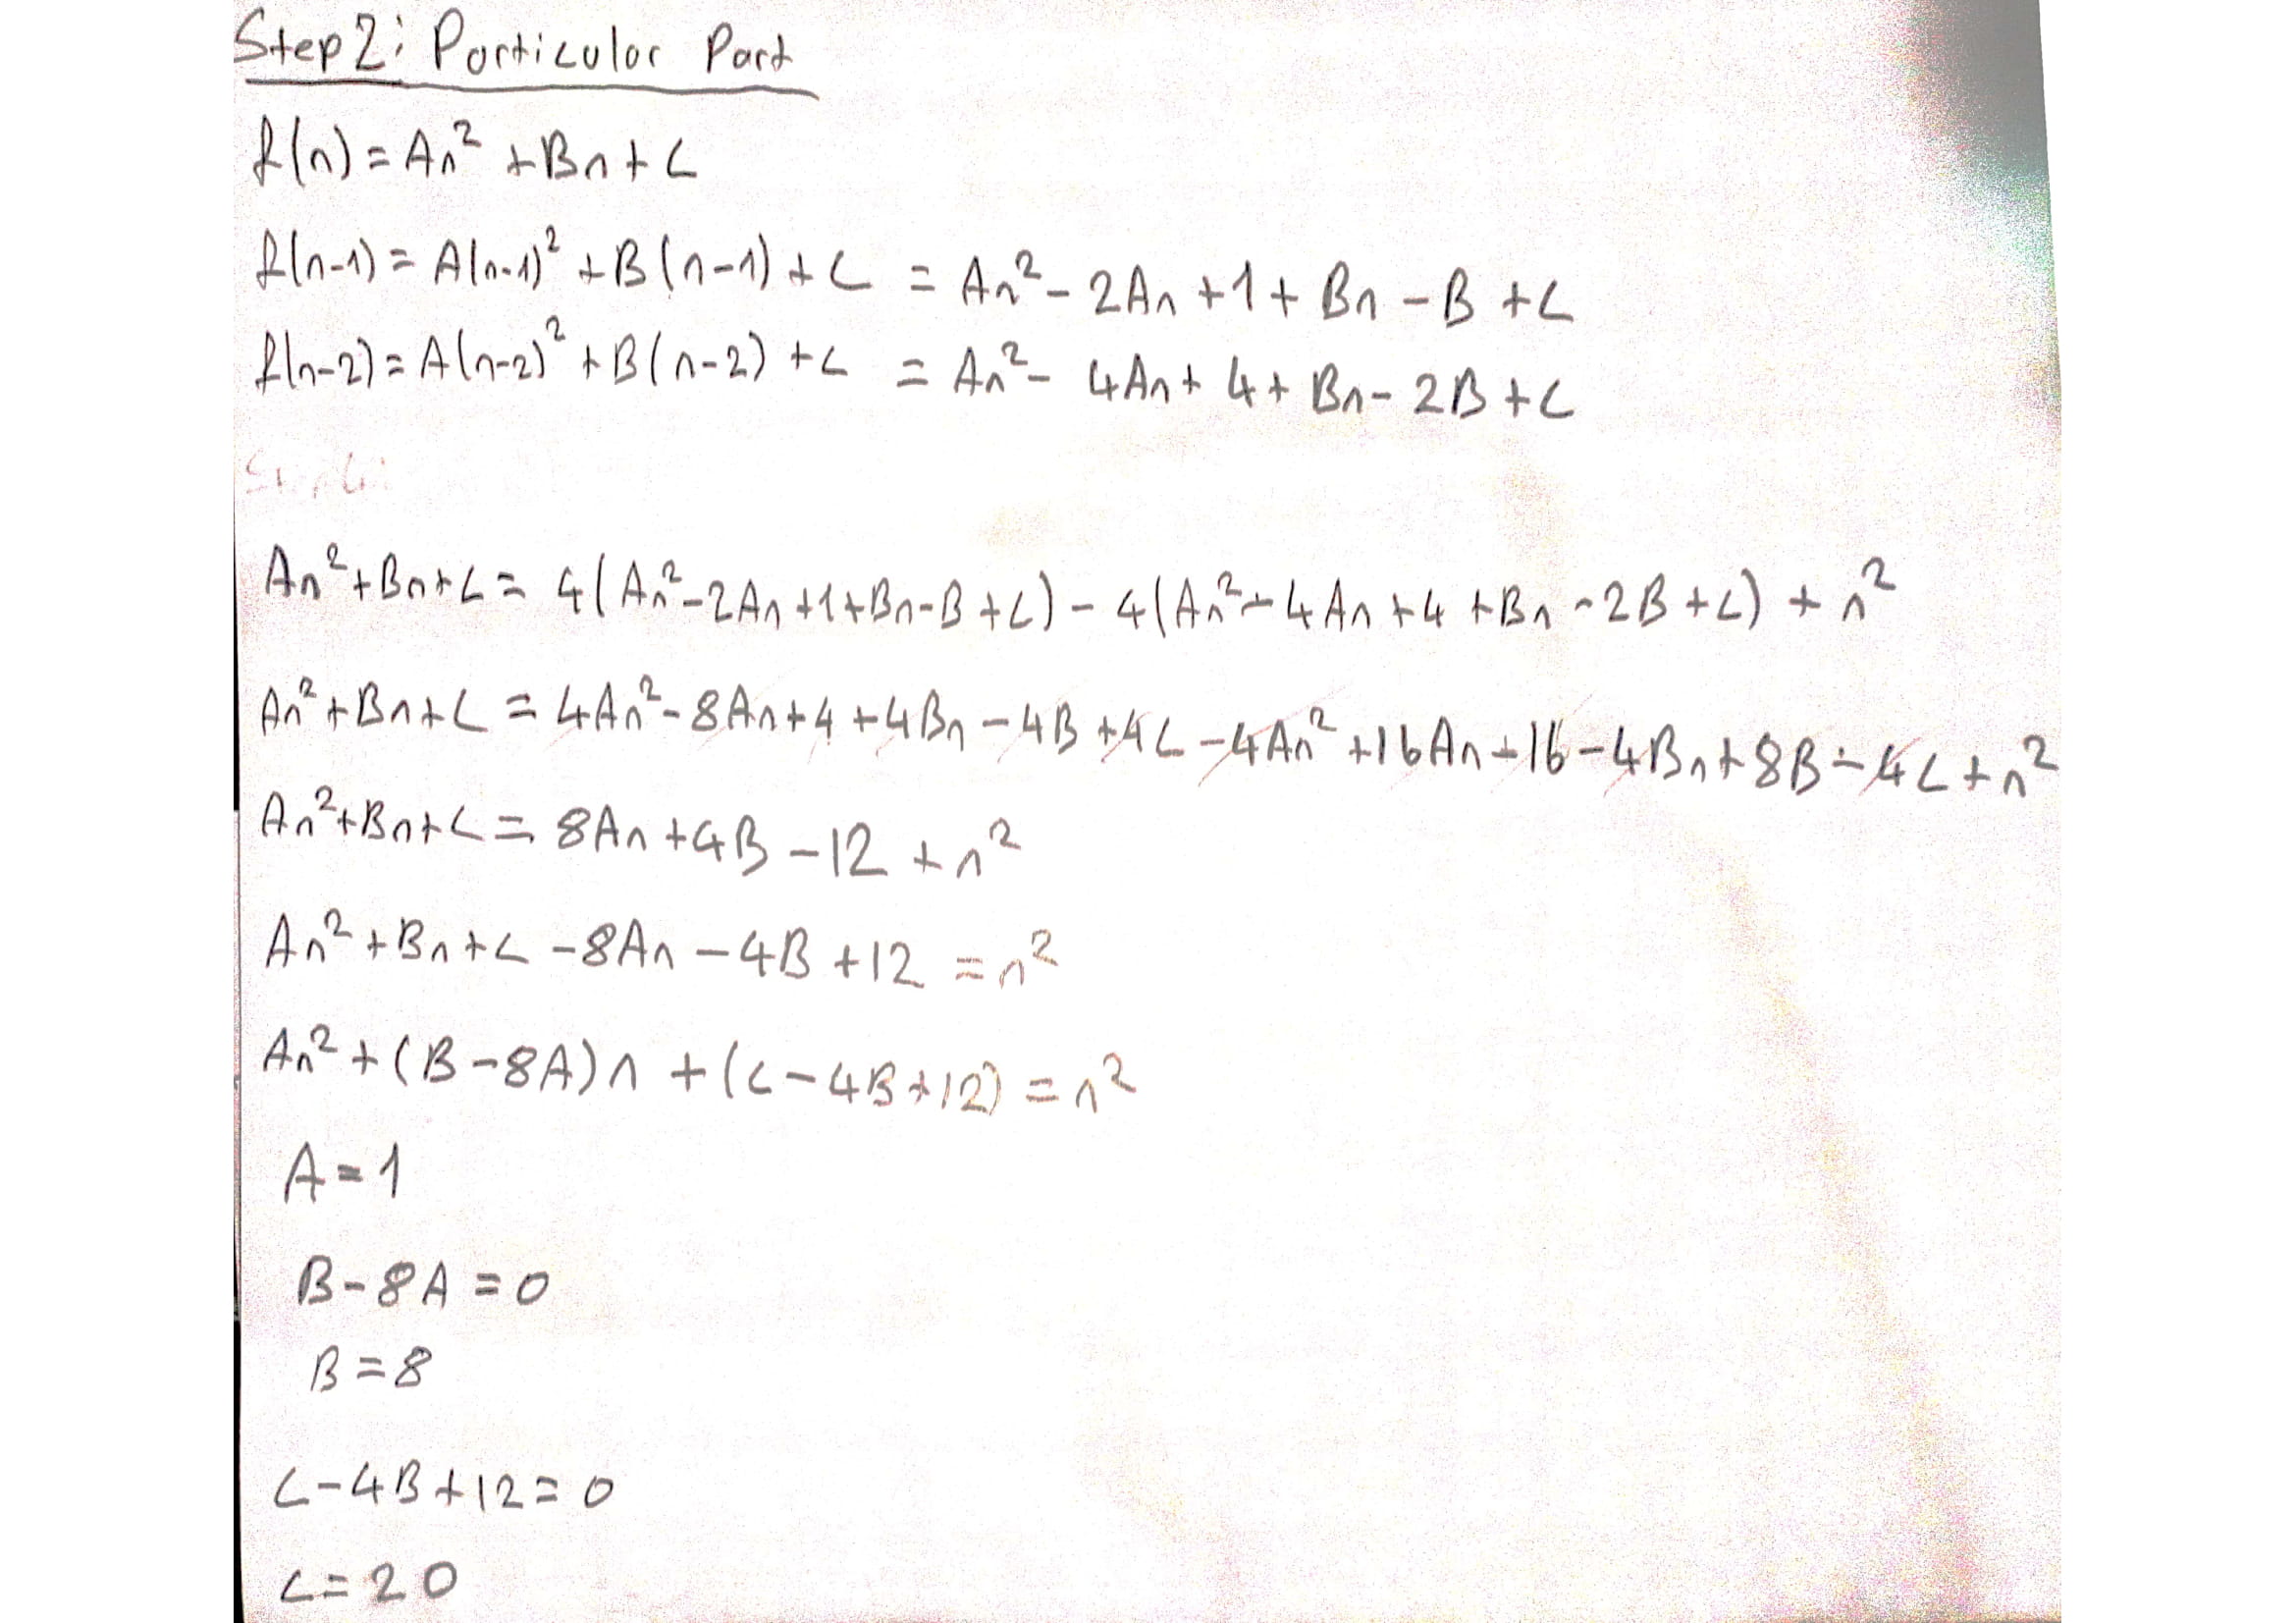 Step 2: Particular Part
f(n) = An² + Bn + C
f(n-1) = A(n-1)² + B(n-1) + C = An² - 2An + 1 + Bn - B + C
f(n-2) = A(n-2)² + B(n-2) + C = An² - 4An + 4 + Bn - 2B + C
An² + Bn + C = 4(An² - 2An + 1 + Bn - B + C) - 4(An² - 4An + 4 + Bn - 2B + C) + n²
An² + Bn + C = 4An² - 8An + 4 + 4Bn - 4B + 4C - 4An² + 16An - 16 - 4Bn + 8B - 4C + n²
An² + Bn + C = 8An + 4B - 12 + n²
An² + Bn + C - 8An - 4B + 12 = n²
An² + (B - 8A)n + (C - 4B + 12) = n²
A = 1
B - 8A = 0
B = 8
C - 4B + 12 = 0
C = 20